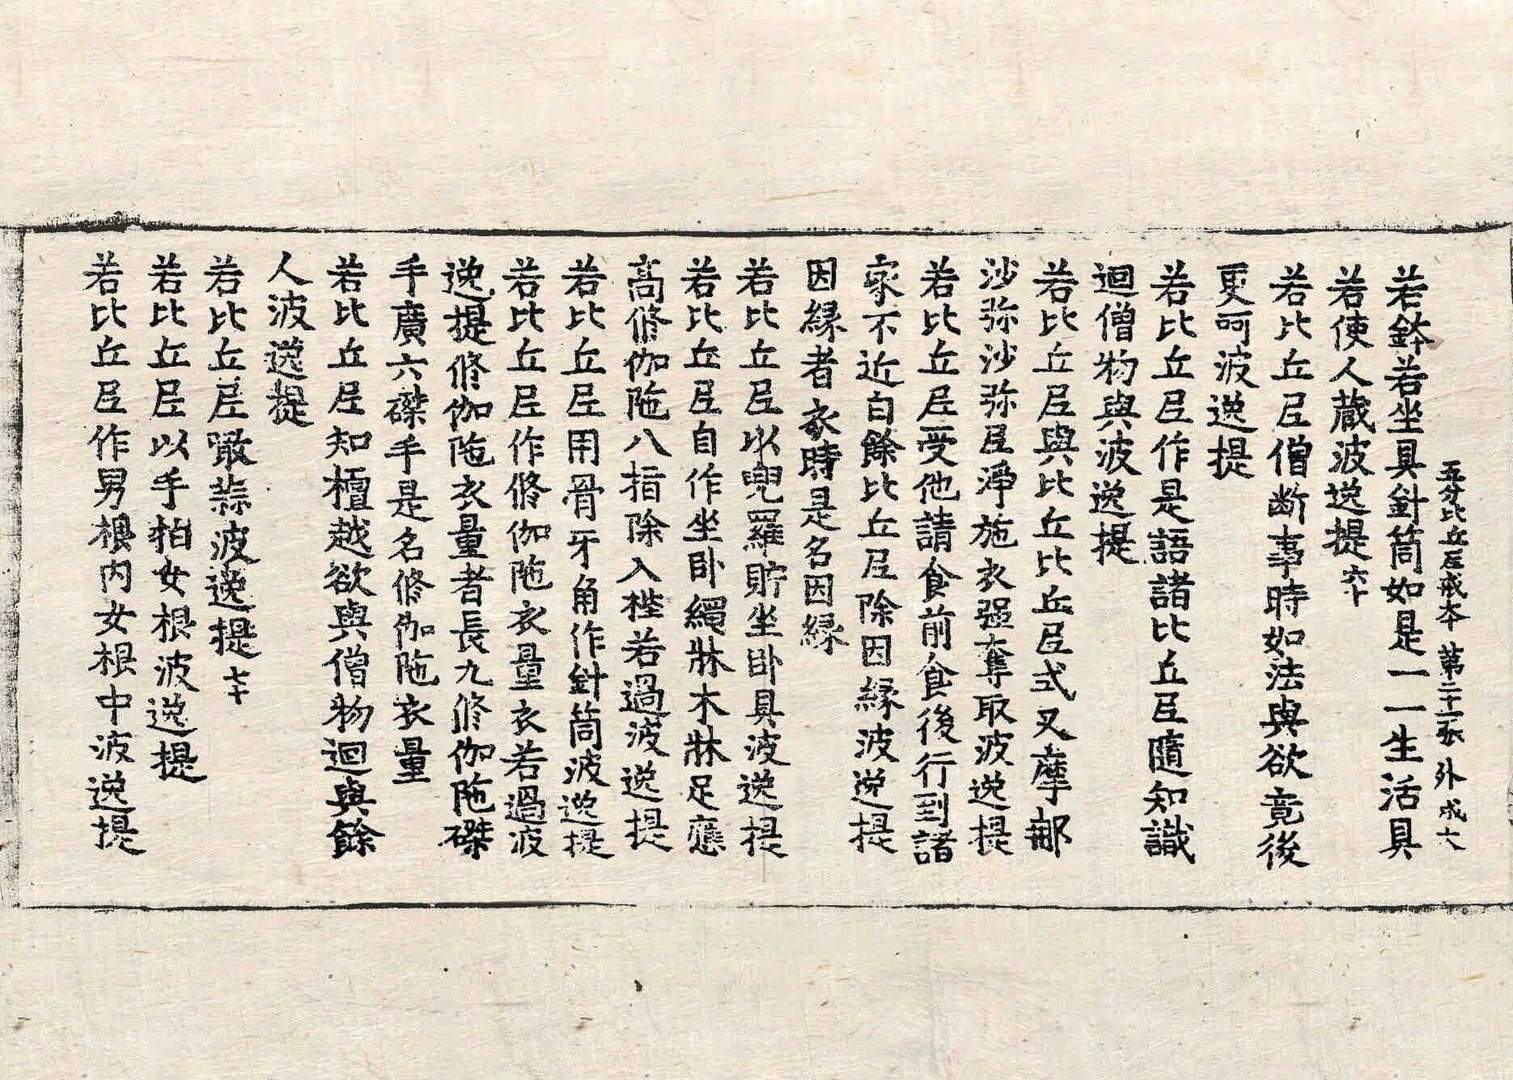 五分比丘尼戒本 第二十二張 外成六
若鉢若坐具針筒如是一一生活具
若使人藏波逸提六十
若比丘尼僧断事時如法與欲竟後
更呵波逸提
若比丘尼作是語諸比丘尼隨知識
迴僧物與波逸提
若比丘尼與比丘比丘尼式叉摩那
沙弥沙弥尼淨施衣强奪取波逸提
若比丘尼受他請食前食後行到諸
家不近白餘比丘尼除因緣波逸提
因縁者衣時是名因縁
若比丘尼以兜羅貯坐卧具波逸提
若比丘尼自作坐卧繩牀木牀足應
高脩伽陁八指除入梐若過波逸提
若比丘尼用骨牙角作針筒波逸提
若比丘尼作脩伽陁衣量衣若過波
逸提脩伽陁衣量者長九脩伽陁磔
手廣六磔手是名脩伽陁衣量
若比丘尼知檀越欲與僧物迴與餘
人波逸提
若比丘尼噉蒜波逸提七十
若比丘尼以手拍女根波逸提
若比丘尼作男根內女根中波逸提